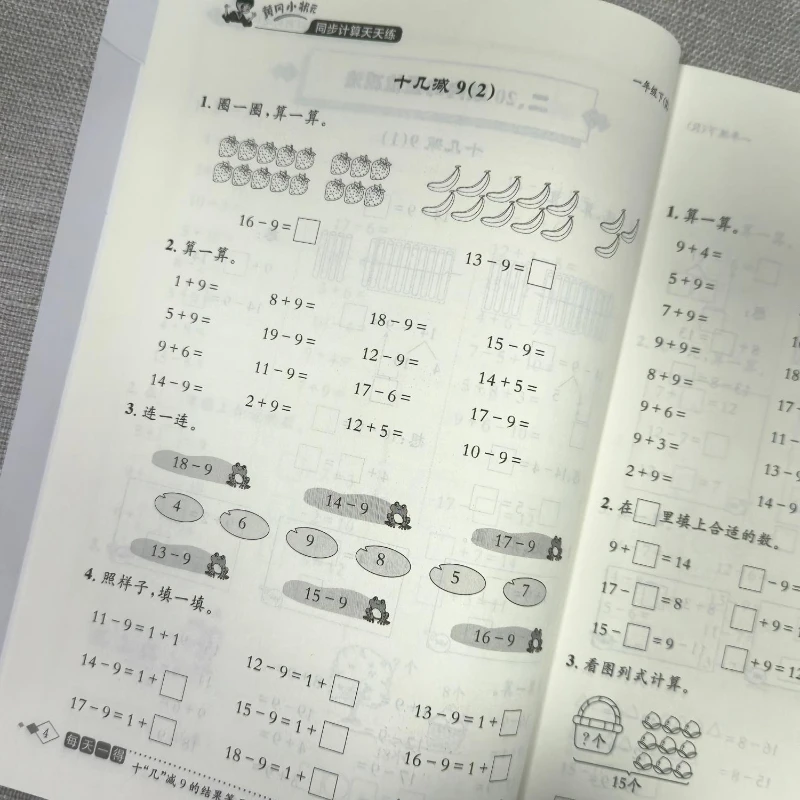 黄冈小状元
同步计算天天练
十几减 9(2)
1. 圈一圈,算一算。
16-9=□
13-9=□
2. 算一算。
1+9= 8+9= 18-9= 15-9=
5+9= 19-9= 12-9= 14+5=
9+6= 11-9= 17-6= 17-9=
14-9= 2+9= 12+5= 10-9=
3. 连一连。
18-9 14-9 17-9
4 6 9 8 5 7
13-9 15-9 16-9
4. 照样子,填一填。
11-9=1+1
14-9=1+□ 12-9=1+□ 13-9=1+□
17-9=1+□ 15-9=1+□ 16-9=1+□
18-9=1+□
4
每天一得
十“几”减 9 的结果等
一年级下(R)
1. 算一算。
9+4=
5+9=
7+9=
9+9=
8+9=
9+6=
9+3=
2+9=
18
17-
11-
13-9
14-9
2. 在□里填上合适的数。
9+□=14
17-□=8
15-□=9
□-9=
□+9=
□+9=12
3. 看图列式计算。
?个
15个